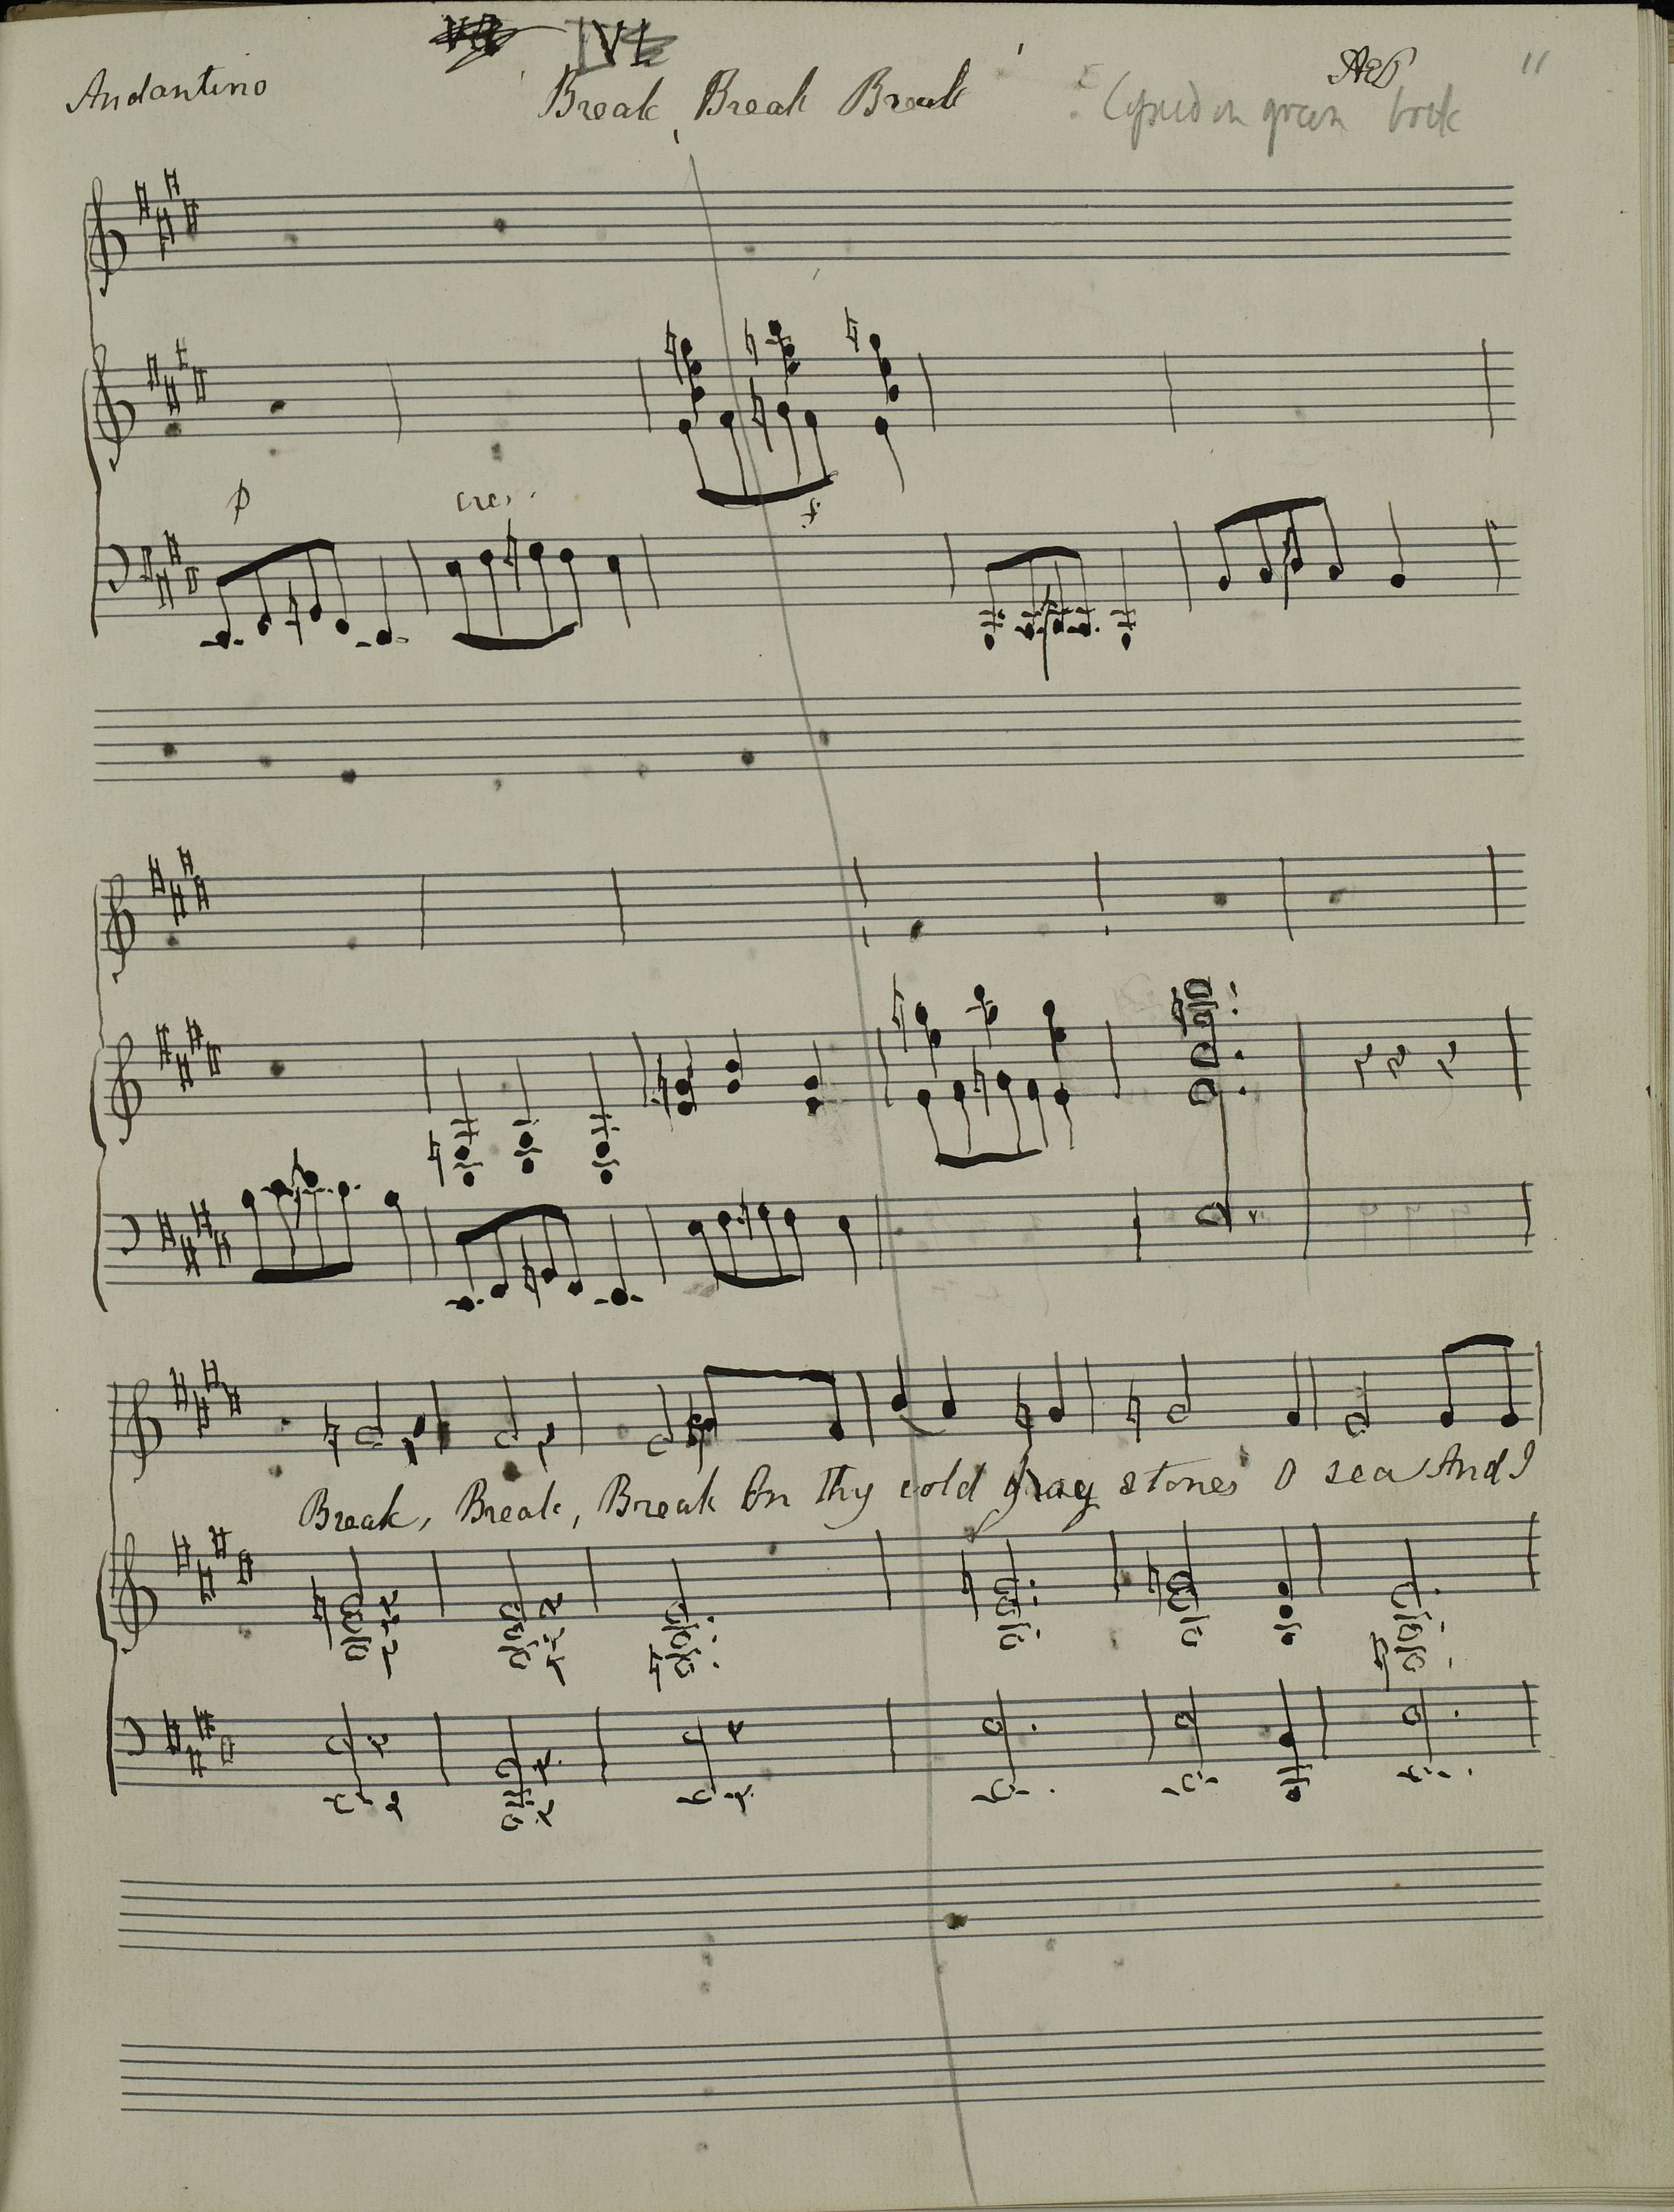 IV
Andantino
'Break, Break Break'
Copied in green book
11
p
cres.
f
Break, Break, Break On thy cold gray stones O sea And I